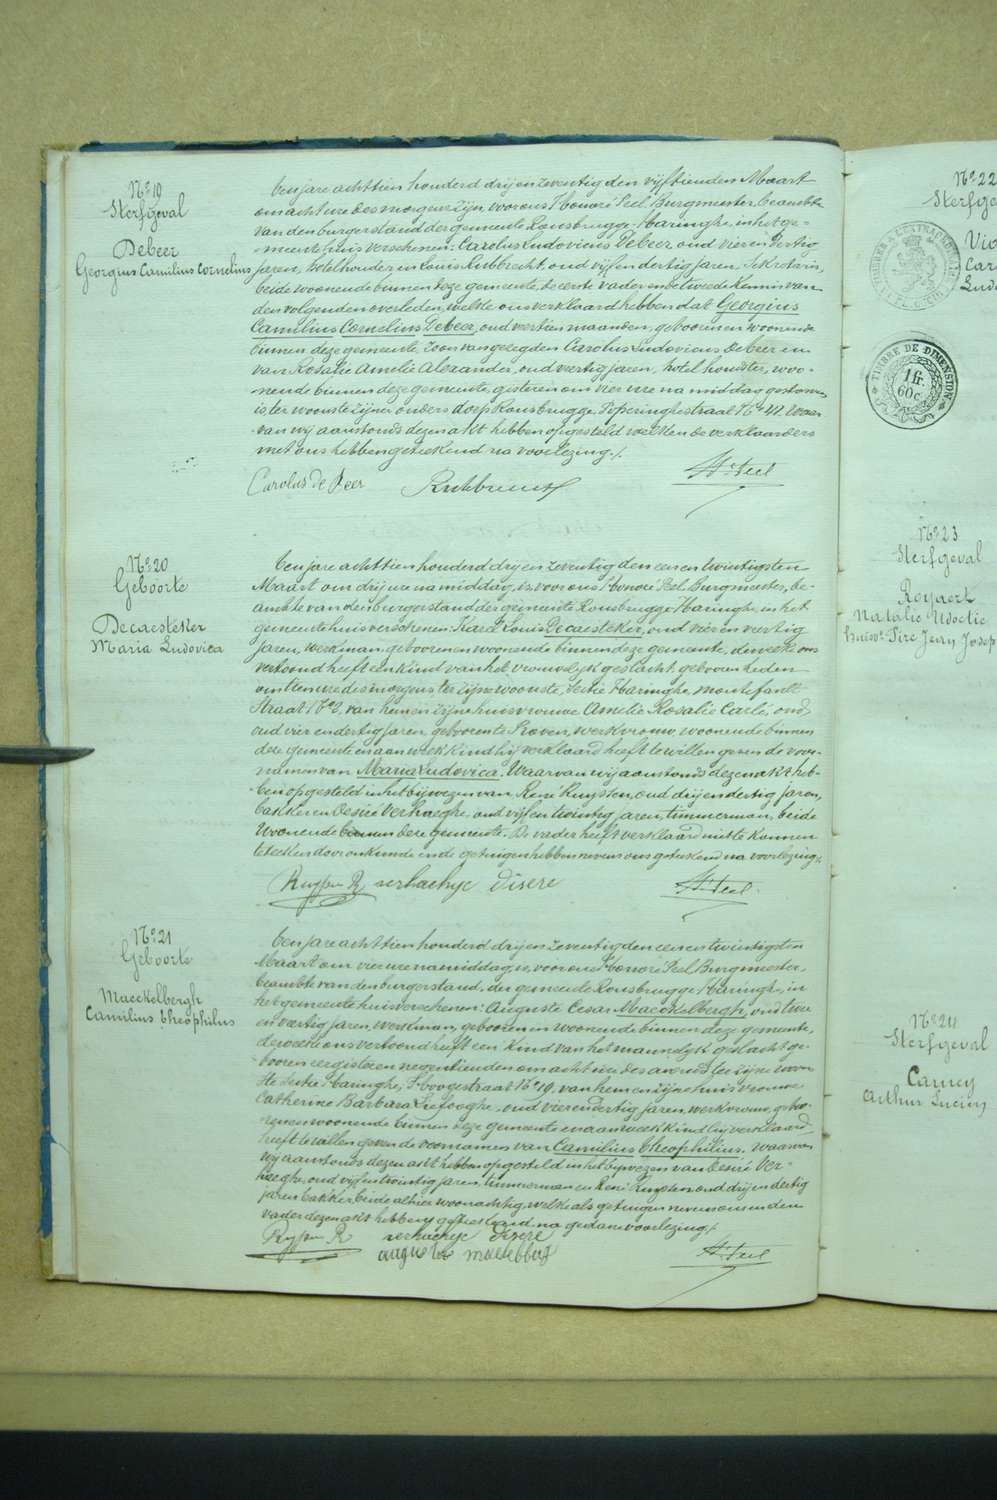 N° 19
Sterfgeval
Debeer
Georgius Camilius Cornelius
Ten jare achttien honderd drij en zeventig den vijftienden Maart
om acht ure des morgens zijn, voor ons Honoré Peel Burgmeester, beambte
van den burgerstand der gemeente Ronsbrugge-Haringhe, in het ge-
-meentehuis verschenen: Carolus Ludovicus Debeer oud vier en dertig
jaren, hotelhouder, en Louis Rubbrecht, oud vijf en dertig jaren, Sekretaris,
beide woonende binnen deze gemeente, de eerste vader en de tweede kennis van
den volgenden overleden, welke ons verklaard hebben dat Georgius
Camilius Cornelius Debeer, oud veertien maanden, geboren en woonende
binnen deze gemeente, zoon van gezegden Carolus Ludovicus Debeer en
van Rosalie Amelie Alexander, oud veertig jaren, hotelhoudster, woo-
nende binnen deze gemeente, gisteren om vier ure na middag gestorven
is, ter woonste zijner ouders dorp Ronsbrugge, Poperinghestraat N° 42. Waer-
van wij aanstonds dezen akt hebben opgesteld welken de verklaarders
met ons hebben geteekend na voorlezing./.
Carolus de Beer Rubbrecht H. Peel
N° 20
Geboorte
Decaesteker
Maria Ludovica
Ten jare achttien honderd drij en zeventig den een en twintigsten
Maart om drij ure na middag, is, voor ons Honoré Peel Burgmeester, be-
ambte van den burgerstand der gemeente Ronsbrugge-Haringhe, in het
gemeentehuis verschenen: Karel Louis Decaesteker, oud vier en veertig
jaren, werkman, geboren en woonende binnen deze gemeente, dewelke ons
vertoond heeft een kind van het vrouwelijk geslacht, geboren heden
om tien ure des morgens ter zijne woonste, sectie Haringhe,
straat N° 2, van hem en zijne huisvrouwe Amelie Rosalie Carlé, oud,
oud vier en dertig jaren, geboren te Proven, werkvrouw, woonende binnen
deze gemeente en aan welk kind hij verklaard heeft te willen geven de voor-
namen van Maria Ludovica. Waarvan wij aanstonds dezen akt heb-
-ben opgesteld in het bijwezen van René Ruyssen, oud drij en dertig jaren,
bakker en Desiré Verhaeghe, oud vijf en twintig jaren, timmerman, beide
woonende binnen deze gemeente. De vader heeft verklaard niet te konnen
teekenen door onkunde en de getuigen hebben nevens ons geteekend na voorlezing./.
Ruyssen R verhaehge disere H. Peel
N° 21
Geboorte
Maeckelbergh
Camilius Theophilus
Ten jare achttien honderd drij en zeventig den een en twintigsten
Maart om vier ure namiddag, is, voor ons Honoré Peel Burgmeester,
beambte van den burgerstand, der gemeente Ronsbrugge-Haringhe, in
het gemeentehuis verschenen: Auguste Cesar Maeckelbergh, oud twee
en veertig jaren, werkman, geboren en woonende binnen deze gemeente,
dewelke ons vertoond heeft een kind van het mannelijk geslacht ge-
-boren eergisteren negentienden om acht ure des avonds ter zijne woon-
ste sectie Haringhe, Hoogestraat N° 19, van hem en zijne huisvrouwe
Catherine Barbara Liefooghe, oud vier en dertig jaren, werkvrouw, gebo-
ren en woonende binnen deze gemeente en aan welk kind hij verklaard
heeft te willen geven de voornamen van Camilius Theophilius. Waarvan
wij aanstonds dezen akt hebben opgesteld in het bijwezen van Desiré Ver-
haeghe, oud vijf en twintig jaren, timmerman en René Ruyssen, oud drij en dertig
jaren bakker beide alhier woonachtig, welke als getuigen nevens ons en den
vader dezen akt hebben geteekend na gedane voorlezing./.
Ryssen R verhaehge disere
auguste maekelberg H. Peel
N° 22
Sterfge
Vic
Car
Ludo
TIMBRE DE DIMENSION
1 fr.
60 c.
N° 23
Sterfgeval
Royaert
Natalie Udoctie
huisv. Pire Jerry Josep
N° 24
Sterfgeval
Camey
Arthur Lucien